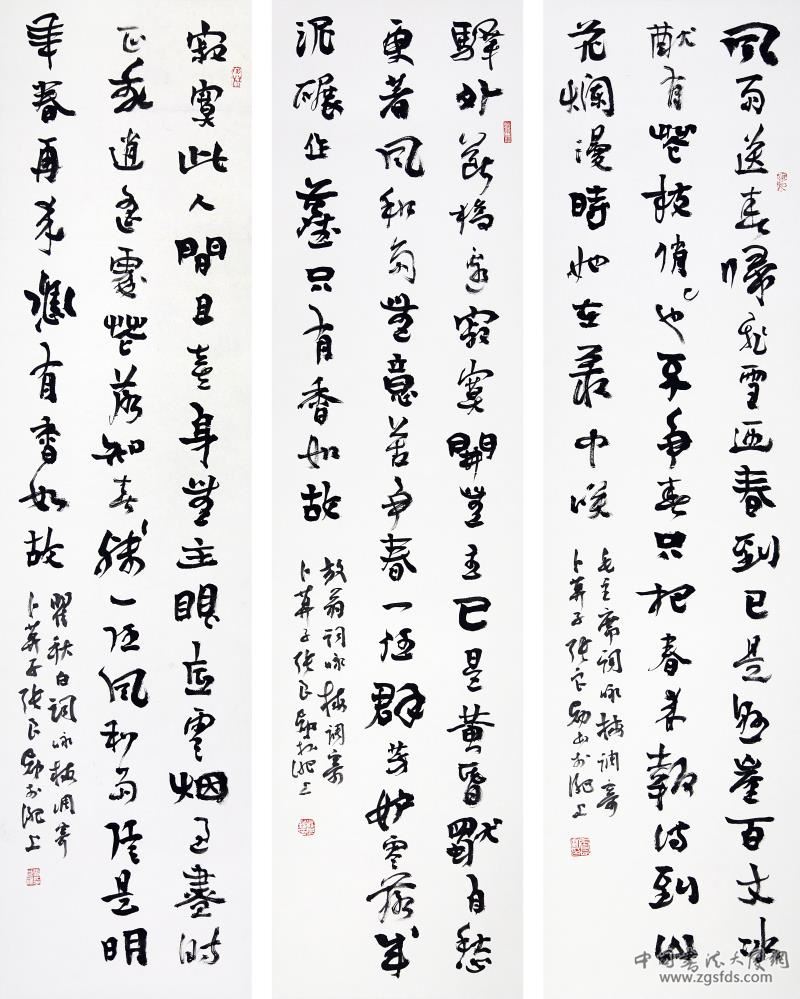 風雨送春歸飛雪迎春到已是懸崖百丈冰
猷有花枝俏俏也不争春只把春来報待到山
花爛漫時她在叢中咲
毛主席詞咏梅調寄
卜算子張良勳書於淝上
驛外断橋邊寂寞開無主已是黄昏獨自愁
更著風和雨無意苦争春一任群芳妒零落成
泥碾作塵只有香如故
放翁詞咏梅調寄
卜算子張良勳於淝上
寂寞此人間且喜身無主眼底雲烟過盡時
正我逍遥處花落知春殘一任風和雨信是明
年春再来應有香如故
瞿秋白詞咏梅調寄
卜算子張良勳於淝上
中國書法大廈網
www.zgsfds.com